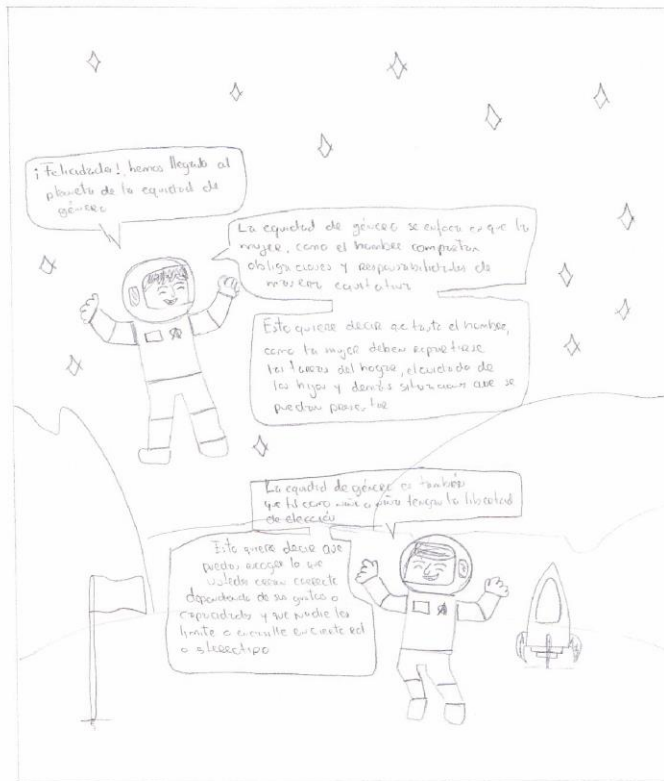 ¡Felicidades! hemos llegado al
planeta de la equidad de
género
La equidad de género se enfoca en que la
mujer, como el hombre compartan
obligaciones y responsabilidades de
manera equitativa
Esto quiere decir que tanto el hombre,
como la mujer deben repartirse
las tareas del hogar, el cuidado de
los hijos y demás situaciones que se
puedan presentar
La equidad de género es también
que tú como niño o niña tengas la libertad
de elección
Esto quiere decir que
puedas escoger lo que
ustedes crean correcto
dependiendo de sus gustos o
capacidades y que nadie los
limite o en cierto rol
o stereotipo